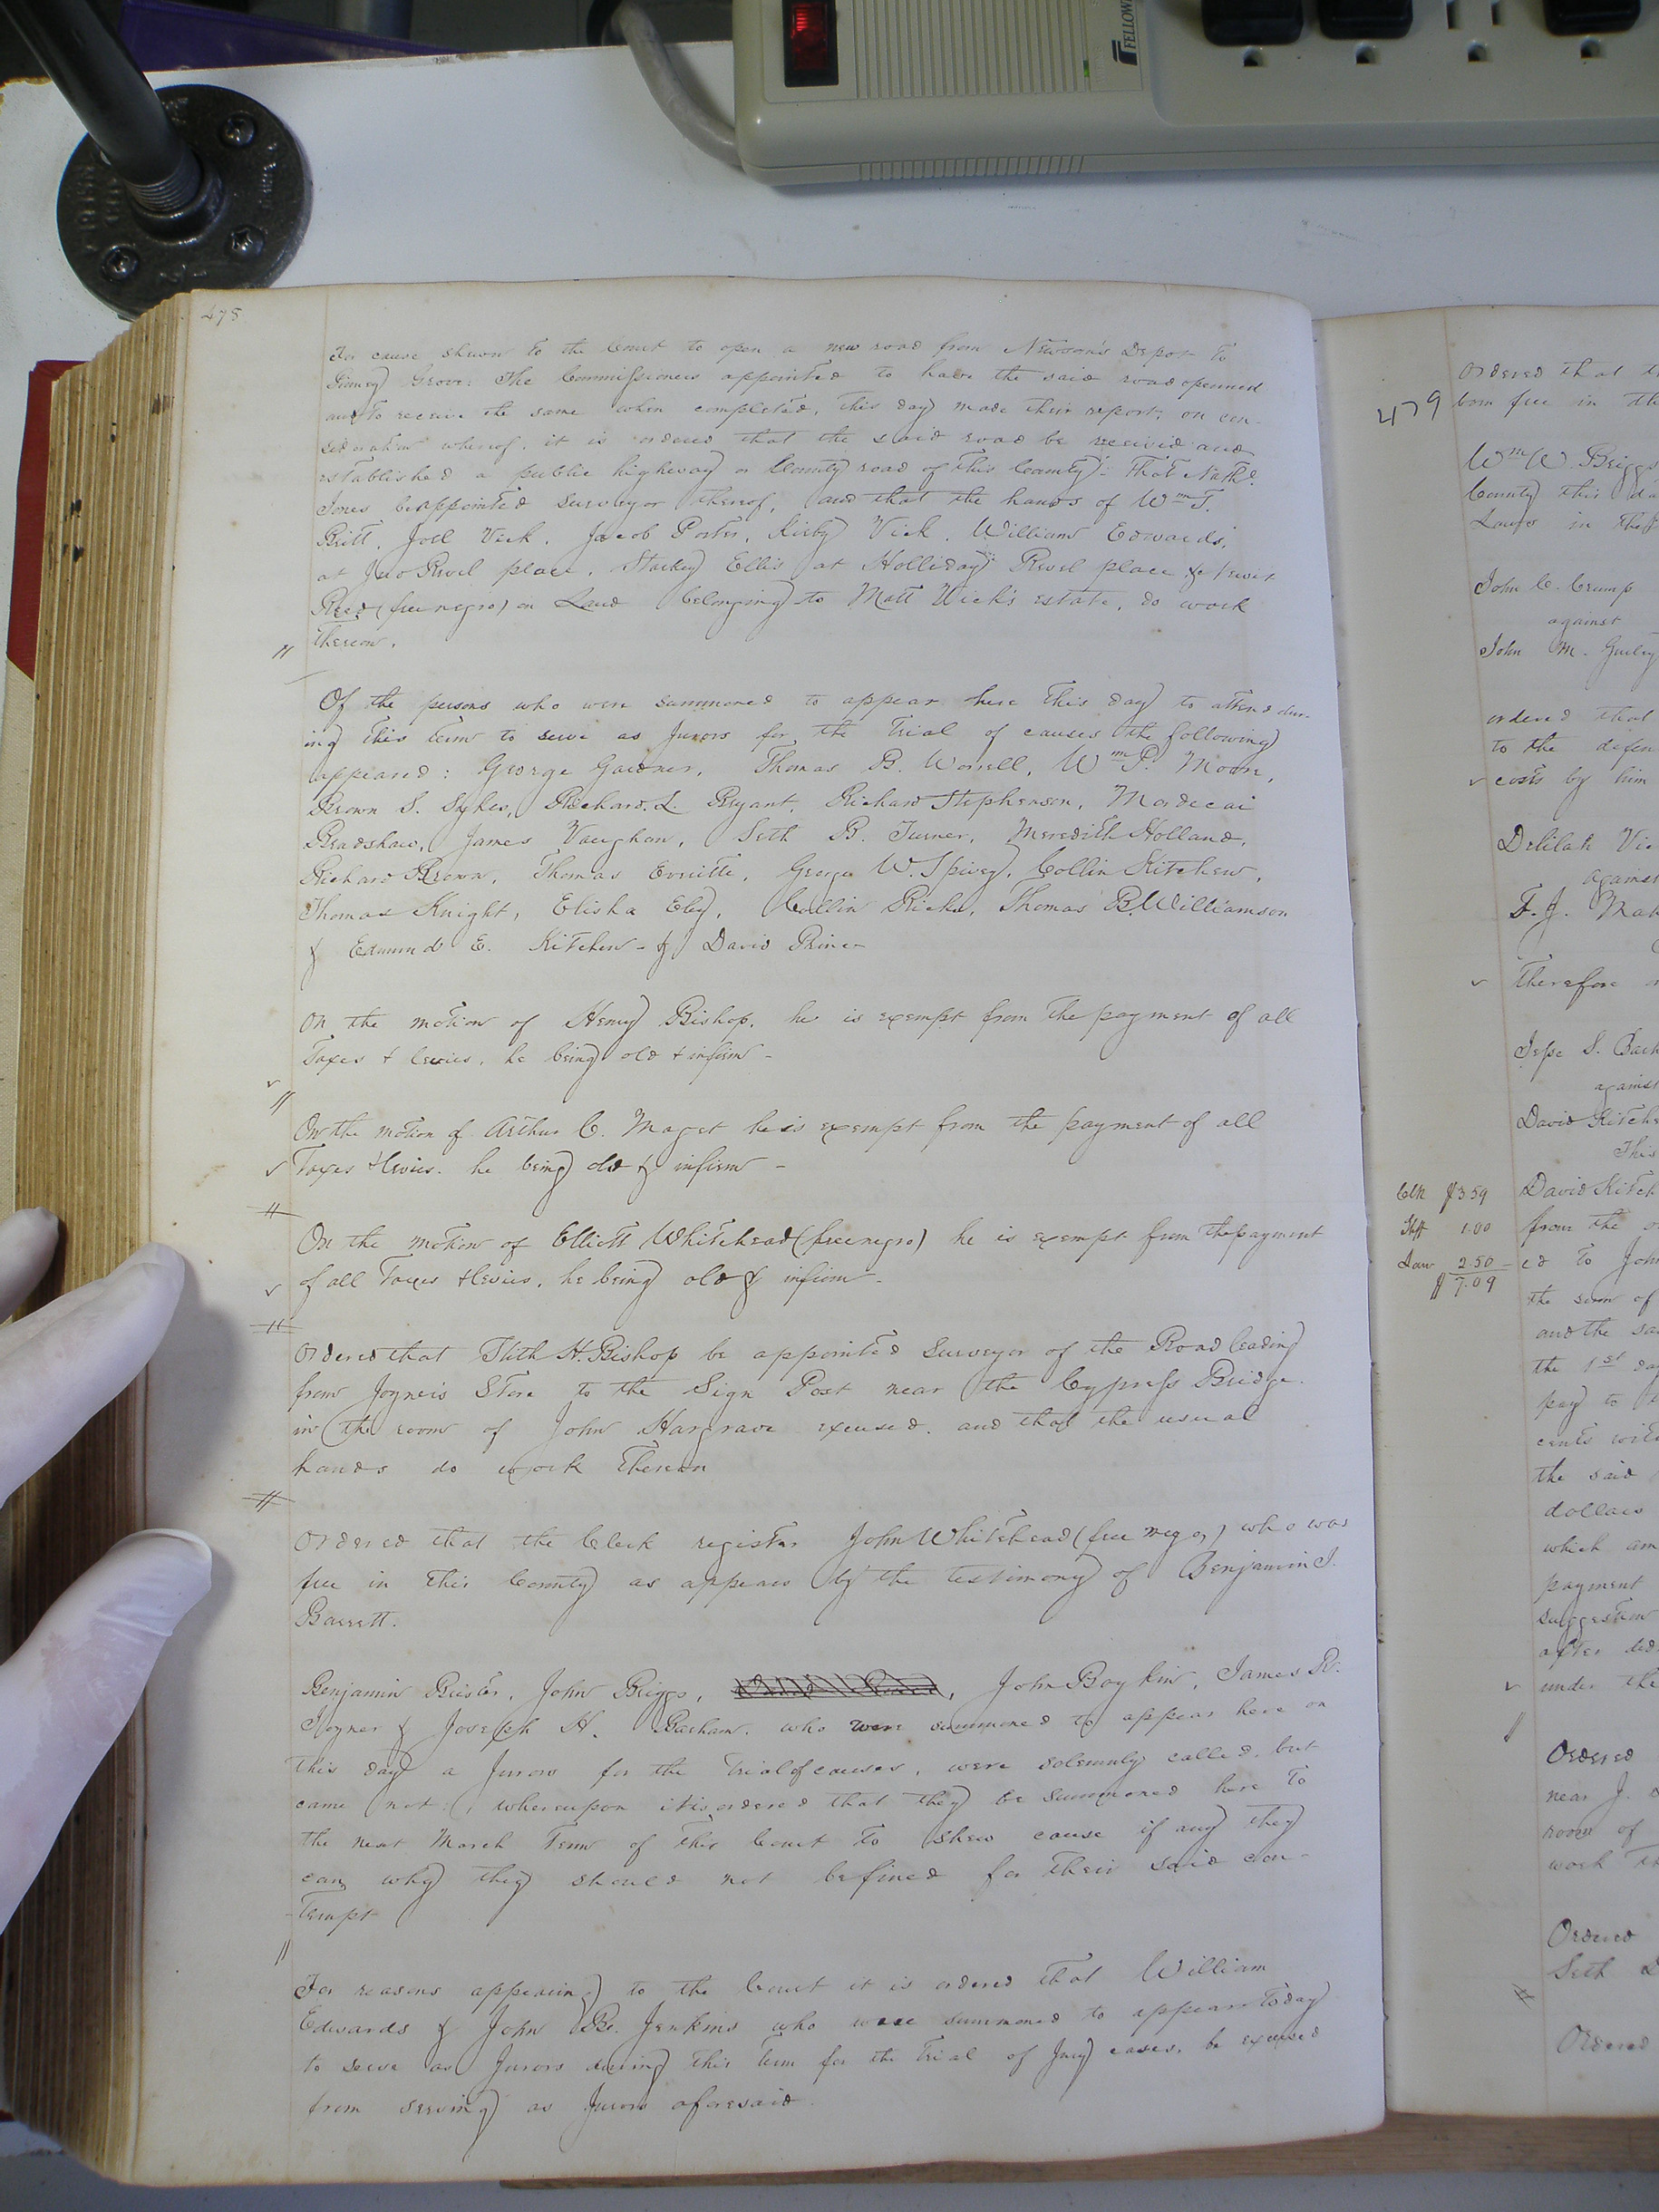 FELLOW
478
For cause shewn to the Court to open a new road from Newsom's Depot to
Piney Grove: The Commissioners appointed to have the said road openned
and to receive the same when completed, this day made their report, on con-
sideration whereof, it is ordered that the said road be received and
established a public highway or County road of this County: That Nathl.
Jones be appointed surveyor thereof, and that the hands of Wm. T.
Britt, Joel Vick, Jacob Porter, Kirby Vick, Williams Edwards,
at Jno Revel place, Starkey Ellis at Holliday Revel place & Lewis
Reed (free negro) on Land belonging to Matt Vick's estate, do work
thereon.
Of the persons who were summoned to appear here this day to attend dur-
ing this term to serve as Jurors for the trial of causes the following
appeared: George Gardner, Thomas B. Worrell, Wm. P. Moore,
Brown S. Sykes, Richard L. Bryant, Richard Stephenson, Mordecai
Bradshaw, James Vaughan, Seth B. Turner, Meredith Holland,
Richard Brown, Thomas Everitte, George W. Spivey, Collin Kitchen,
Thomas Knight, Elisha Eley, Collin Ricks, Thomas B. Williamson
& Edmund E. Kitchen - & David Prince
On the motion of Henry Bishop, he is exempt from the payment of all
Taxes & levies, he being old & infirm -
On the motion of Arthur C. Maget he is exempt from the payment of all
Taxes & levies, he being old & infirm -
On the motion of Elliott Whitehead (free negro) he is exempt from the payment
of all Taxes & levies, he being old & infirm -
Ordered that Tilith H. Bishop be appointed Surveyor of the Road leading
from Joyner's Store to the Sign Post near the Cypress Bridge
in the room of John Hargrave excused, and that the usual
hands do work thereon
Ordered that the Clerk register John Whitehead (free negro) who was
free in this County as appears by the testimony of Benjamin J.
Barrett.
Benjamin Brister, John Briggs, John Boykin, James R.
Joyner & Joseph H. Barham, who were summoned to appear here on
this day a Jurors for the trial of causes, were solemnly called, but
came not, whereupon it is ordered that they be summoned here to
the next March Term of this Court to shew cause if any they
can why they should not be fined for their said con-
tempt
For reasons appearing to the Court it is ordered that William
Edwards & John B. Jenkins who were summoned to appear today
to serve as Jurors during this term for the trial of Jury cases, be excused
from serving as Jurors aforesaid.
479
Ordered that
born free in th
Wm W. Briggs
County this da
Laws in the
John C. Crump
against
John M. Gurley
ordered that
to the defen
costs by him
Delilah Vi
against
Therefore
Jesse S. Bar
against
David Kitch
This
Clk $3.59 David Kitch
Shff 1.00 from the
Law 2.50 ed to John
$7.09
the sum of
and the sa
the 1st day
pay to
cents with
the said
dollars
which am
payment
suggestion
after ded
under the
Ordered
near J.
room of
work th
Ordered
Seth
Ordered